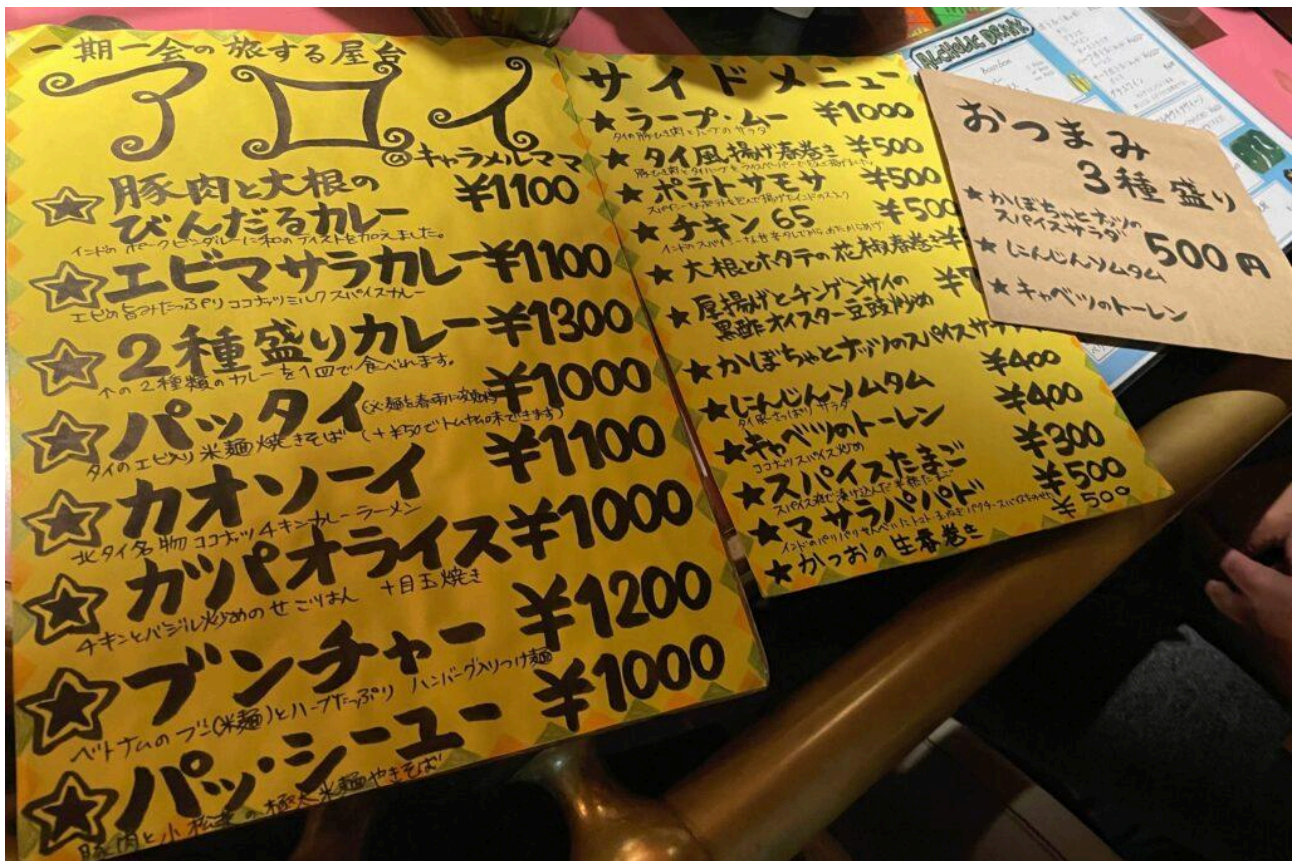 一期一会の旅する屋台
アロイ
@キャラメルママ
豚肉と大根の
びんだるカレー ¥1100
インドのポークビンダルーに和のテイストを加えました。
エビマサラカレー ¥1100
エビの旨みたっぷりココナッツミルクスパイスカレー
2種盛りカレー ¥1300
↑の2種類のカレーを1皿で食べれます。
パッタイ ¥1000
タイのエビ入り米麺焼きそば
カオソーイ ¥1100
北タイ名物ココナッツチキンカレーラーメン
ガパオライス ¥1000
チキンとバジル炒めのせごはん +目玉焼き
ブンチャー ¥1200
ベトナムのブン(米麺)とハーブたっぷり ハンバーグ入りつけ麺
パッ・シーユー ¥1000
豚肉と小松菜の極太米麺やきそば
サイドメニュー
★ラープ・ムー ¥1000
タイの豚ひき肉とハーブのサラダ
★タイ風揚げ春巻き ¥500
★ポテトサモサ ¥500
★チキン65 ¥500
★大根とホタテの花椒春巻き
★厚揚げとチンゲンサイの
黒酢オイスター豆豉炒め
★かぼちゃとナッツのスパイスサラダ
★にんじんソムタム ¥400
タイ風さっぱりサラダ
★キャベツのトーレン ¥400
ココナッツスパイス炒め
★スパイスたまご ¥300
★マサラパパド ¥500
★かつおの生春巻き ¥500
おつまみ
3種盛り
★かぼちゃとナッツの
スパイスサラダ
500円
★にんじんソムタム
★キャベツのトーレン
ALCOHOLIC DRINK
Bourbon